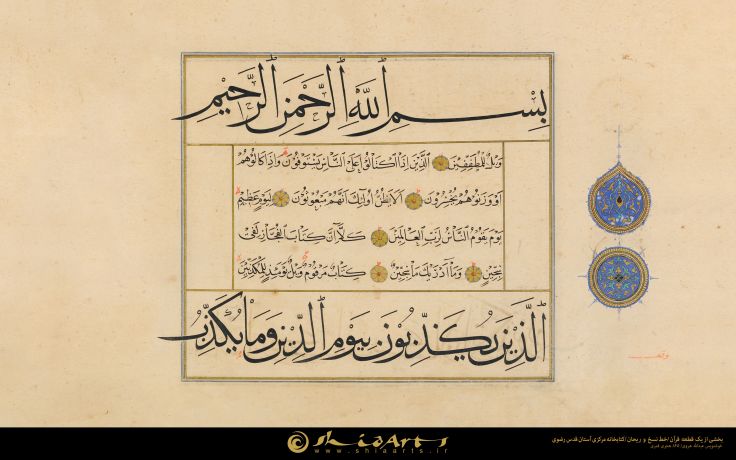 بِسْمِ اللَّهِ الرَّحْمَٰنِ الرَّحِيمِ
وَيْلٌ لِلْمُطَفِّفِينَ الَّذِينَ إِذَا اكْتَالُوا عَلَى النَّاسِ يَسْتَوْفُونَ وَإِذَا كَالُوهُمْ
أَوْ وَزَنُوهُمْ يُخْسِرُونَ أَلَا يَظُنُّ أُولَٰئِكَ أَنَّهُمْ مَبْعُوثُونَ لِيَوْمٍ عَظِيمٍ
يَوْمَ يَقُومُ النَّاسُ لِرَبِّ الْعَالَمِينَ كَلَّا إِنَّ كِتَابَ الْفُجَّارِ لَفِي
سِجِّينٍ وَمَا أَدْرَاكَ مَا سِجِّينٌ كِتَابٌ مَرْقُومٌ وَيْلٌ يَوْمَئِذٍ لِلْمُكَذِّبِينَ
الَّذِينَ يُكَذِّبُونَ بِيَوْمِ الدِّينِ وَمَا يُكَذِّبُ
بخشی از یک قطعه قرآن/خط نسخ و ریحان/کتابخانه مرکزی آستان قدس رضوی
ShiaArts
www.shiaarts.ir